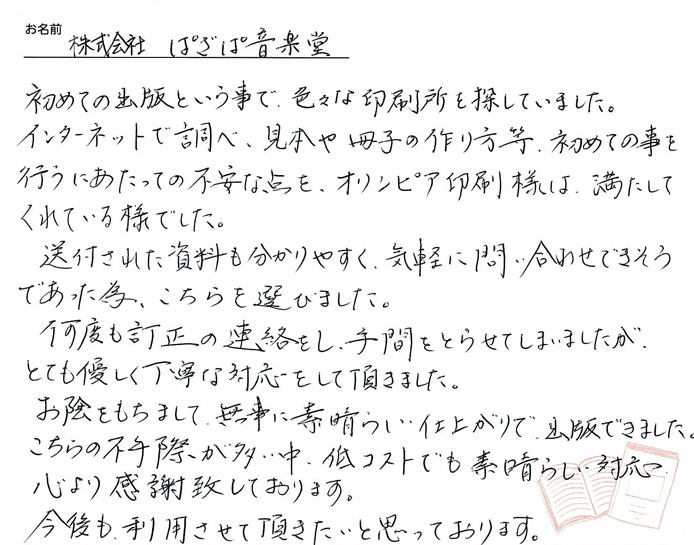 お名前 株式会社 ぱざぱ音楽堂
初めての出版という事で、色々な印刷所を探していました。
インターネットで調べ、見本や冊子の作り方等、初めての事を
行うにあたっての不安な点を、オリンピア印刷様は、満たして
くれている様でした。
送付された資料も分かりやすく、気軽に問い合わせできそう
であった為、こちらを選びました。
何度も訂正の連絡をし、手間をとらせてしまいましたが、
とても優しく丁寧な対応をして頂きました。
お陰をもちまして、無事に素晴らしい仕上がりで、出版できました。
こちらの不手際が多い中、低コストでも素晴らしい対応へ
心より感謝致しております。
今後も、利用させて頂きたいと思っております。